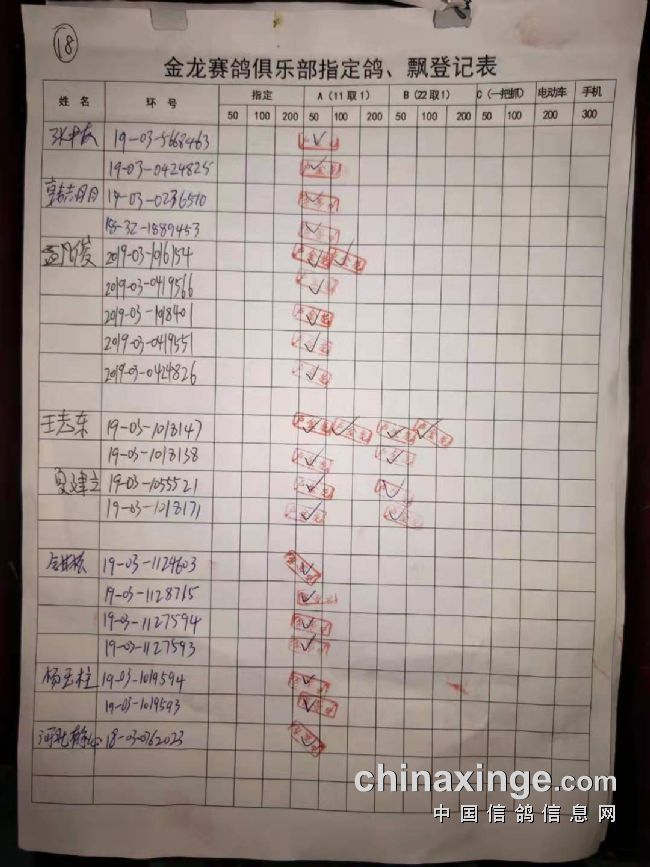 18
金龙赛鸽俱乐部指定鸽、飘登记表
姓 名 环 号 指定 A (11取1) B (22取1) C (一把抓) 电动车 手机
50 100 200 50 100 200 50 100 200 50 100 200 200 300
19-03-5668463
19-03-0424825
19-03-0236510
18-32-1889453
2019-03-1016154
2019-03-0419566
2019-03-1018401
2019-03-0419551
2019-03-0424826
王志东 19-03-1018147
19-03-1018138
夏建立 19-03-1055521
19-03-1018171
19-03-1124603
19-03-1128715
19-03-1127594
19-03-1127593
杨玉柱 19-03-1019594
19-03-1019593
河北 18-03-0362023
chinaxinge.com
中国信鸽信息网